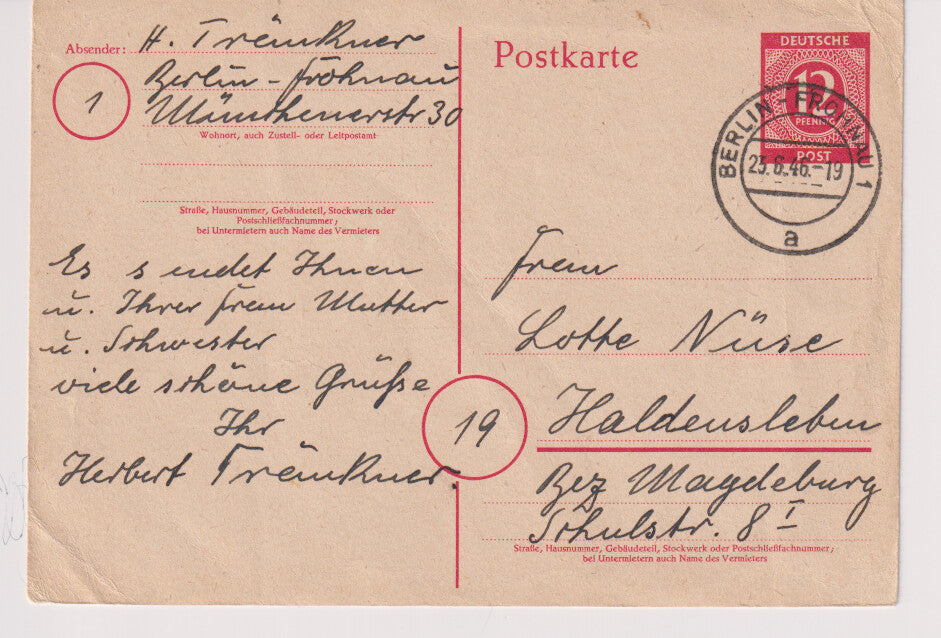 Absender: H. Tränkner
Berlin-Frohnau
1
Münchenerstr 30
Wohnort, auch Zustell- oder Leitpostamt
Straße, Hausnummer, Gebäudeteil, Stockwerk oder
Postschließfachnummer;
bei Untermietern auch Name des Vermieters
Es sendet Ihnen
u. Ihrer Frau Mutter
u. Schwester
viele schöne Grüße
Ihr
Herbert Tränkner.
Postkarte
DEUTSCHE
12
PFENNIG
POST
BERLIN-FROHNAU 1
23.6.46.-19
a
Frau
Lotte Nüse
19
Haldensleben
Bez Magdeburg
Schulstr. 8 I
Straße, Hausnummer, Gebäudeteil, Stockwerk oder Postschließfachnummer;
bei Untermietern auch Name des Vermieters